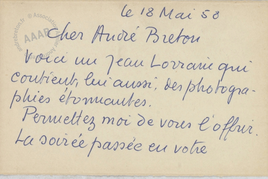 le 18 Mai 58
Cher André Breton
Voici un Jean Lorrain qui
contient, lui aussi, des photogra-
phies étonnantes.
Permettez moi de vous l'offrir.
La soirée passée en votre